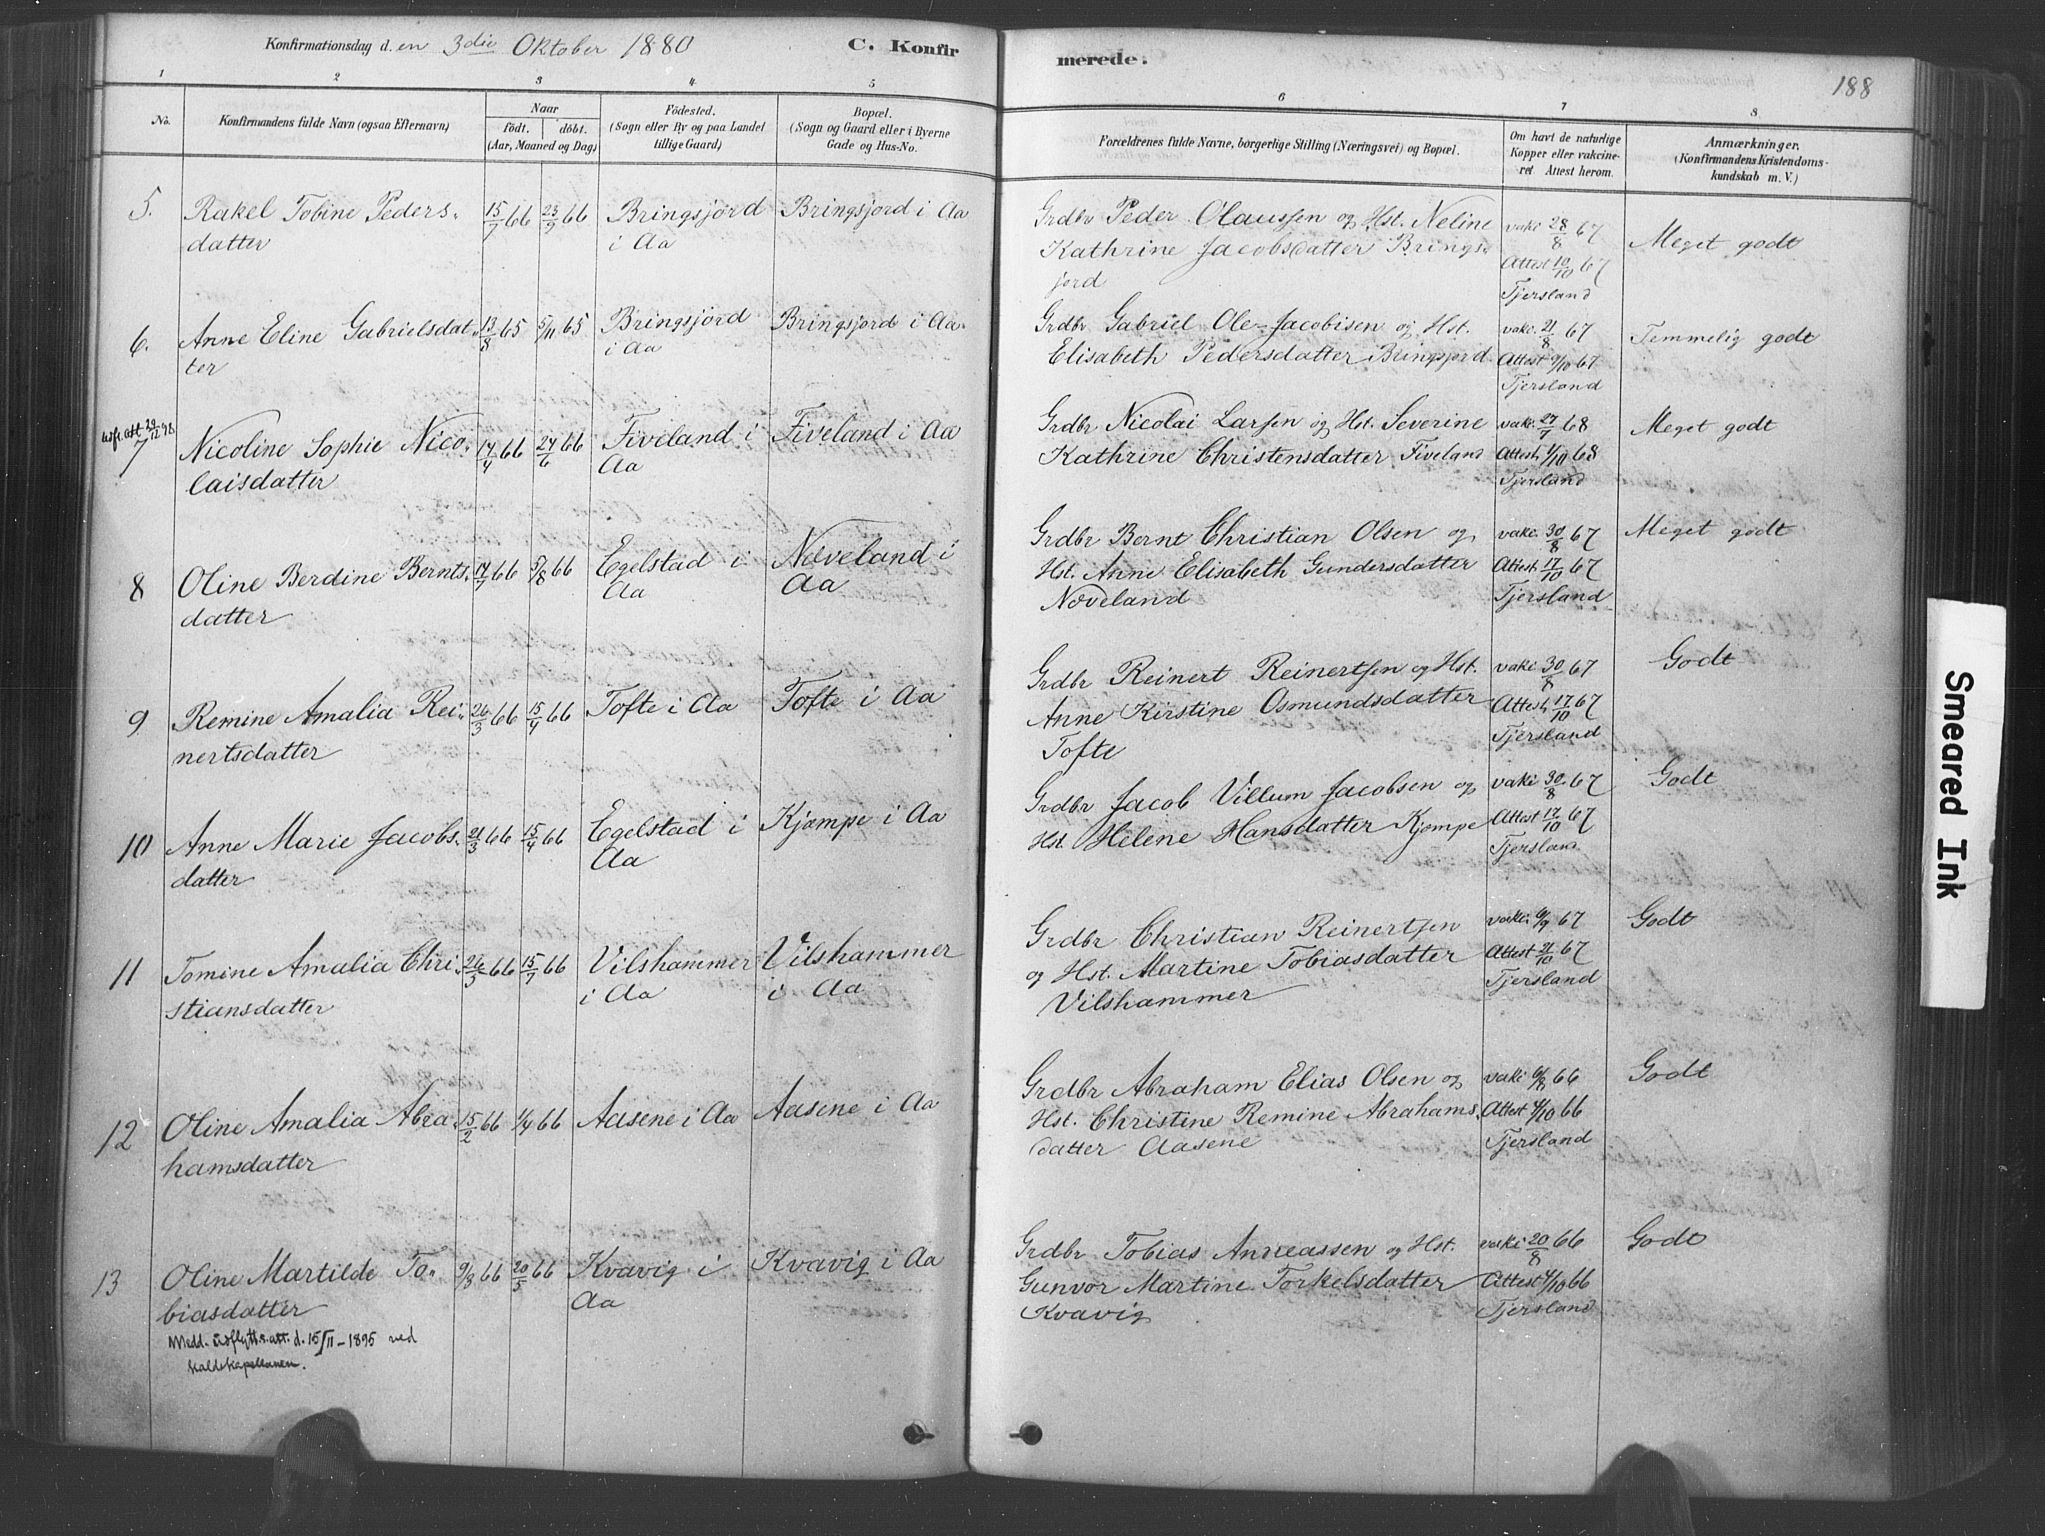 Konfirmationsdag d. en 3die Oktober 1880 C. Konfir merede. 188
1 2 3 4 5 6 7 8
No.
Konfirmandens fulde Navn (ogsaa Efternavn)
Naar
födt. döbt.
(Aar, Maaned og Dag)
Födested.
(Sogn eller By og paa Landet
tillige Gaard)
Bopæl.
(Sogn og Gaard eller i Byerne
Gade og Hus-No.
Forældrenes fulde Navne, borgerlige Stilling (Næringsvei) og Bopæl.
Om havt de naturlige
Kopper eller vakcine-
ret Attest herom.
Anmærkninger.
(Konfirmandens Kristendoms-
kundskab m. V.)
5. Rakel Tobine Peders- 15/7 66 23/9 66 Bringsjord Bringsjord i Aa Grdbr Peder Olaussen og Hst. Neline vaki 28/8 67 Meget godt
datter i Aa Kathrine Jacobsdatter Brings- Attest 10/10 67
jord Tjersland
6. Anne Eline Gabrielsdat- 13/8 65 5/11 65 Bringsjord Bringsjord i Aa Grdbr Gabriel Ole Jacobisen og Hst. vakc. 21/8 67 Temmelig godt
ter i Aa Elisabeth Pedersdatter Bringsjord Attest 9/10 67
Tjersland
7 Nicoline Sophie Nico- 17/4 66 24/6 66 Fiveland i Fiveland i Aa Grdbr Nicolai Larsen og Hst. Severine vakc. 27/7 68 Meget godt
laisdatter Aa Kathrine Christensdatter Fiveland Attest 1/10 68
Tjersland
8 Oline Berdine Bernts- 14/7 66 5/8 66 Egelstad i Næveland i Grdbr Bernt Christian Olsen og vakc. 30/8 67 Meget godt
datter Aa Aa Hst. Anne Elisabeth Gundersdatter Attest 17/10 67
Næveland Tjersland
9 Remine Amalia Rei- 26/3 66 15/4 66 Tofte i Aa Tofte i Aa Grdbr Reinert Reinertsen og Hst. vaki 30/8 67 Godt
nertsdatter Anne Kirstine Osmundsdatter Attest 17/10 67
Tofte Tjersland
10 Anne Marie Jacobs- 21/3 66 15/4 66 Egelstad i Kjæmpe i Aa Grdbr Jacob Villum Jacobsen og vaki 30/8 67 Godt
datter Aa Hst. Helene Hansdatter Kjæmpe Attest 17/10 67
Tjersland
11 Tomine Amalia Chri- 26/5 66 15/7 66 Vilshammer Vilshammer Grdbr Christian Reinertsen vaki 6/9 67 Godt
stiansdatter i Aa i Aa og Hst. Martine Tobiasdatter Attest 21/10 67
Vilshammer Tjersland
12 Oline Amalia Abra- 15/2 66 1/4 66 Aasene i Aa Aasene i Aa Grdbr Abraham Elias Olsen og vaki 6/8 66 Godt
hamsdatter Hst. Christine Remine Abrahams- Attest 4/10 66
datter Aasene Tjersland
13 Oline Martilde To- 9/8 66 20/5 66 Kvavig i Kvavig i Aa Grdbr Tobias Andreassen og Hst. vaki 20/8 66 Godt
biasdatter Aa Gunvor Martine Torkelsdatter Attest 4/10 66
Kvavig Tjersland
Medd. udflytt.s.att. d. 15/11-1895 ved
kaldskapellanen.
Smeared Ink